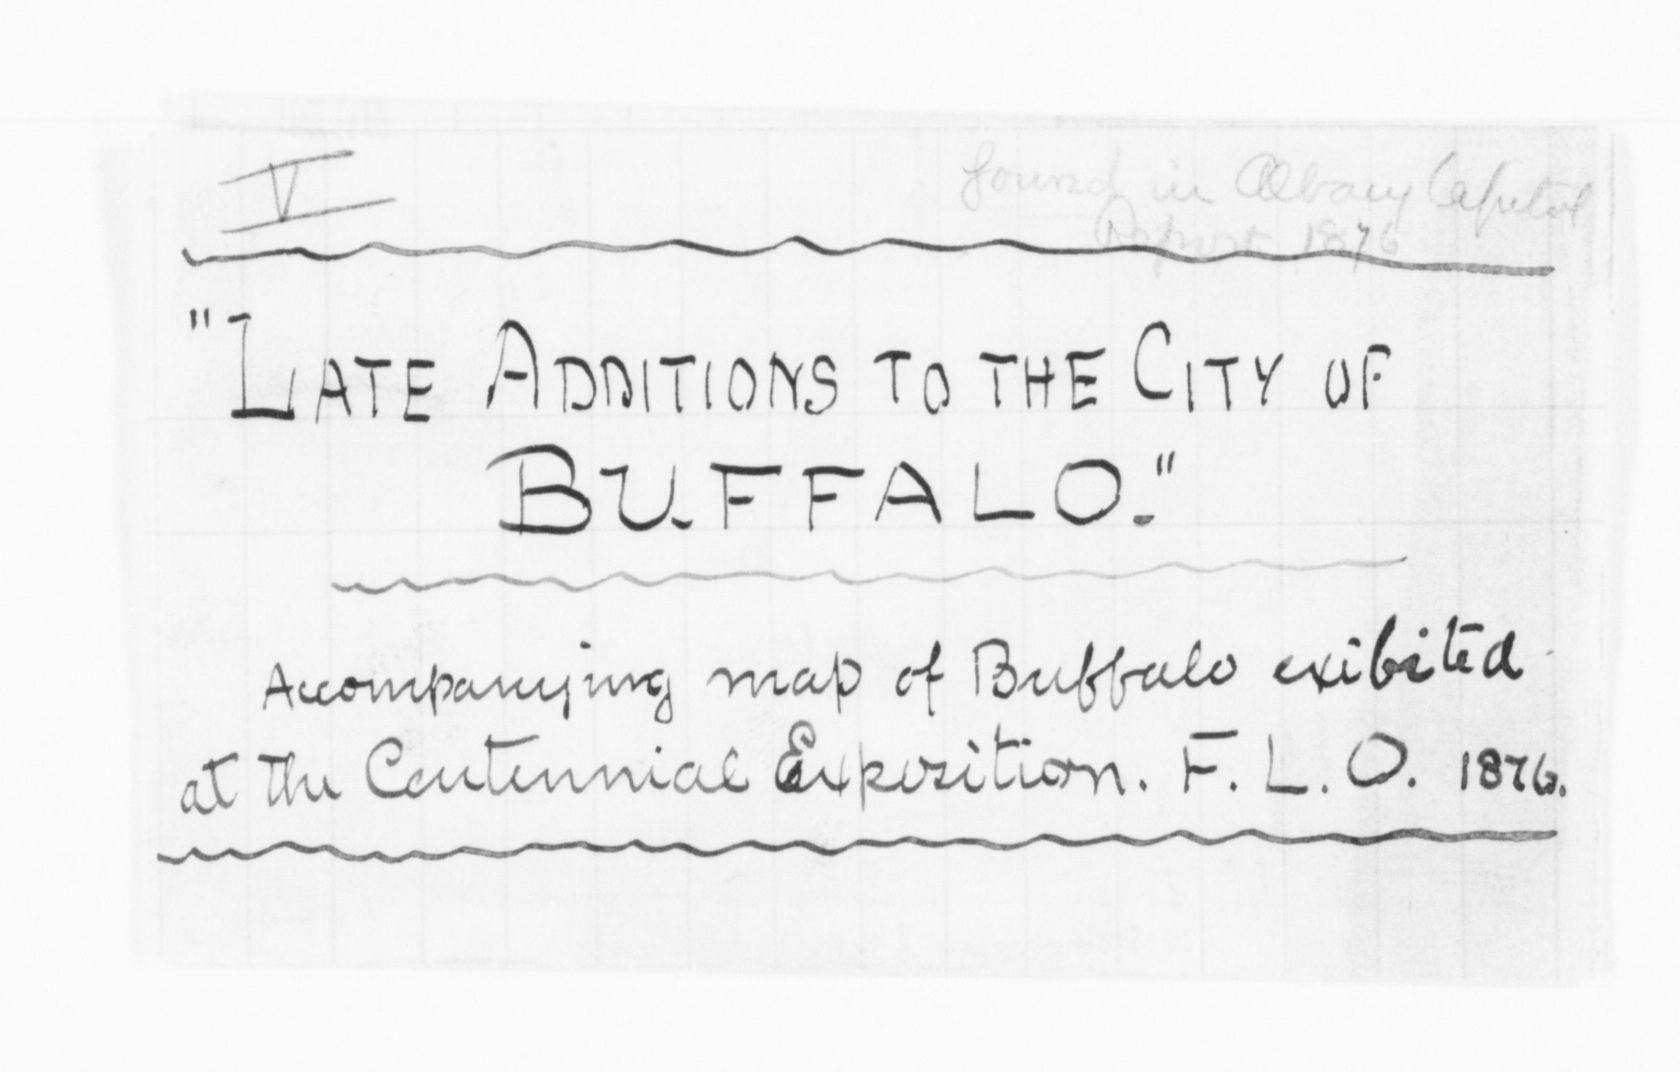 V
found in Albany Capitol
Report 1876
"LATE ADDITIONS TO THE CITY OF
BUFFALO."
Accompanying map of Buffalo exibited
at the Centennial Exposition. F. L. O. 1876.